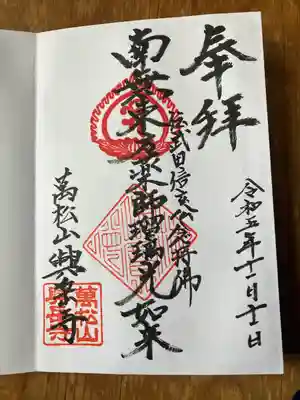 奉拝
武田信玄公念持佛
南無東方薬師瑠璃光如来
萬松山興寺
萬松山
令和五年十一月十二日